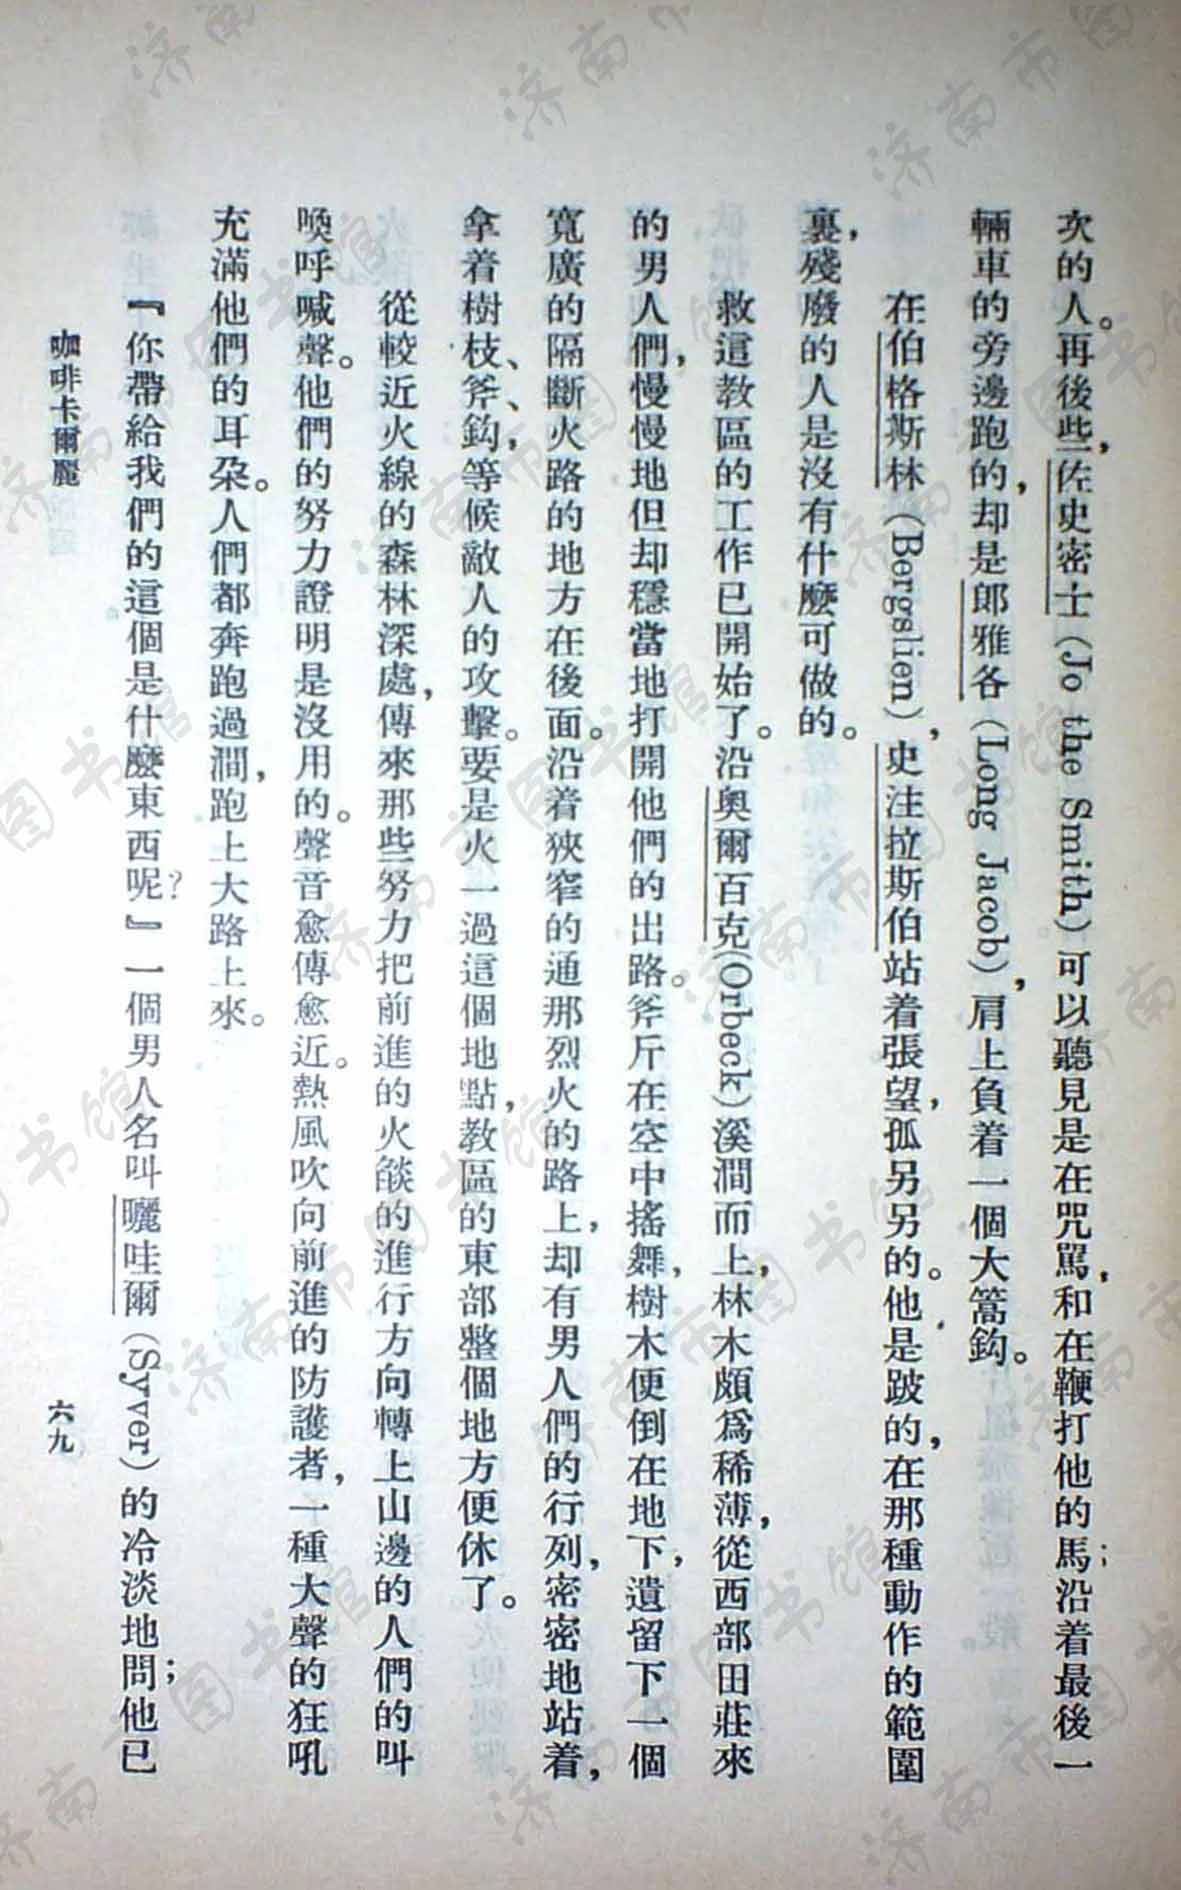 次的人。再後些，佐史密士（Jo the Smith）可以聽見是在咒駡，和在鞭打他的馬；沿着最後一
輛車的旁邊跑的，却是郎雅各（Long Jacob），肩上負着一個大篙鈎。
在伯格斯林（Bergslien），史注拉斯伯站着張望，孤另另的。他是跛的，在那種動作的範圍
裏，殘廢的人是沒有什麼可做的。
救這教區的工作已開始了。沿奧爾百克（Orbeck）溪澗而上，林木頗爲稀薄，從西部田莊來
的男人們，慢慢地但却穩當地打開他們的出路。斧斤在空中搖舞，樹木便倒在地下，遺留下一個
寬廣的隔斷火路的地方在後面。沿着狹窄的通那烈火的路上，却有男人們的行列，密密地站着，
拿着樹枝、斧、鈎，等候敵人的攻擊。要是火一過這個地點，教區的東部整個地方便休了。
從較近火線的森林深處，傳來那些努力把前進的火燄的進行方向轉上山邊的人們的叫
喚呼喊聲。他們的努力證明是沒用的。聲音愈傳愈近。熱風吹向前進的防護者，一種大聲的狂吼
充滿他們的耳朵。人們都奔跑過澗，跑上大路上來。
『你帶給我們的這個是什麼東西呢？』一個男人名叫曬哇爾（Syver）的冷淡地問；他已
咖啡卡爾麗
六九
济南市图书馆